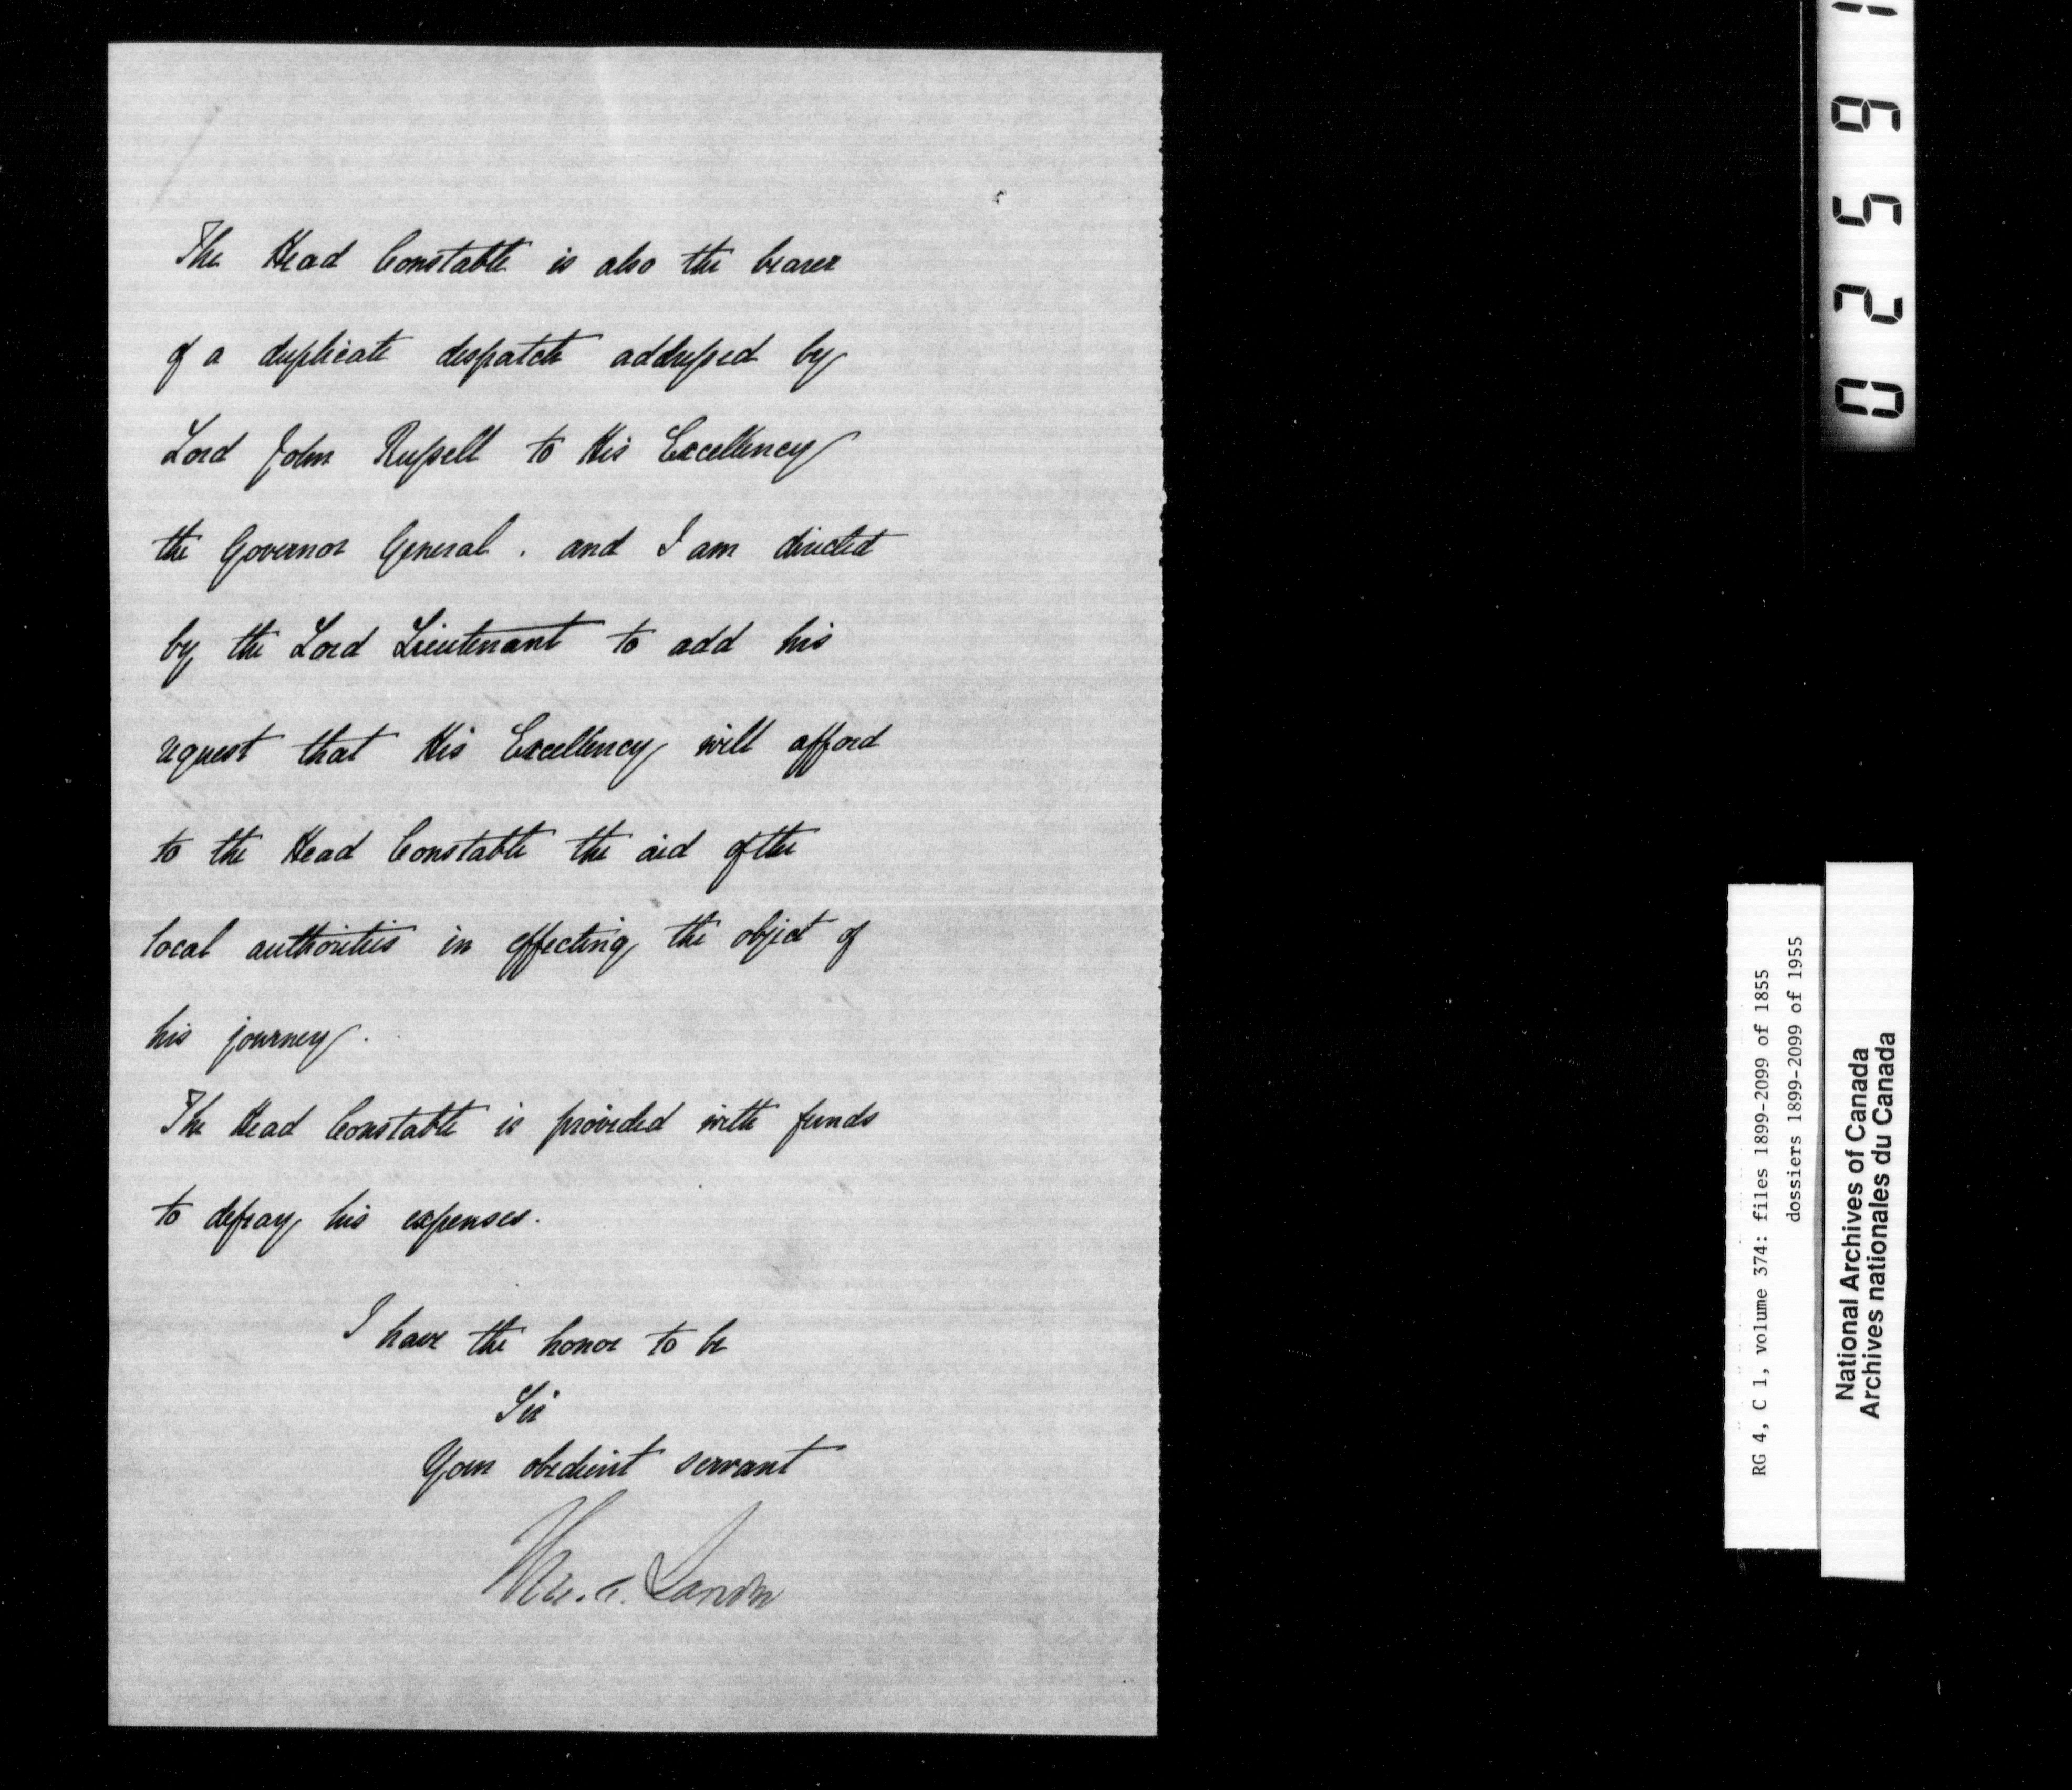 The Head Constable is also the bearer
of a duplicate despatch addressed by
Lord John Russell to His Excellency
the Governor General. and I am directed
by the Lord Lieutenant to add his
request that His Excellency will afford
to the Head Constable the aid of the
local authorities in effecting the object of
his journey.
The Head Constable is provided with funds
to defray his expenses.
I have the honor to be
Sir
Your obedient servant
RG 4, C 1, volume 374: files 1899-2099 of 1855
dossiers 1899-2099 of 1955
National Archives of Canada
Archives nationales du Canada